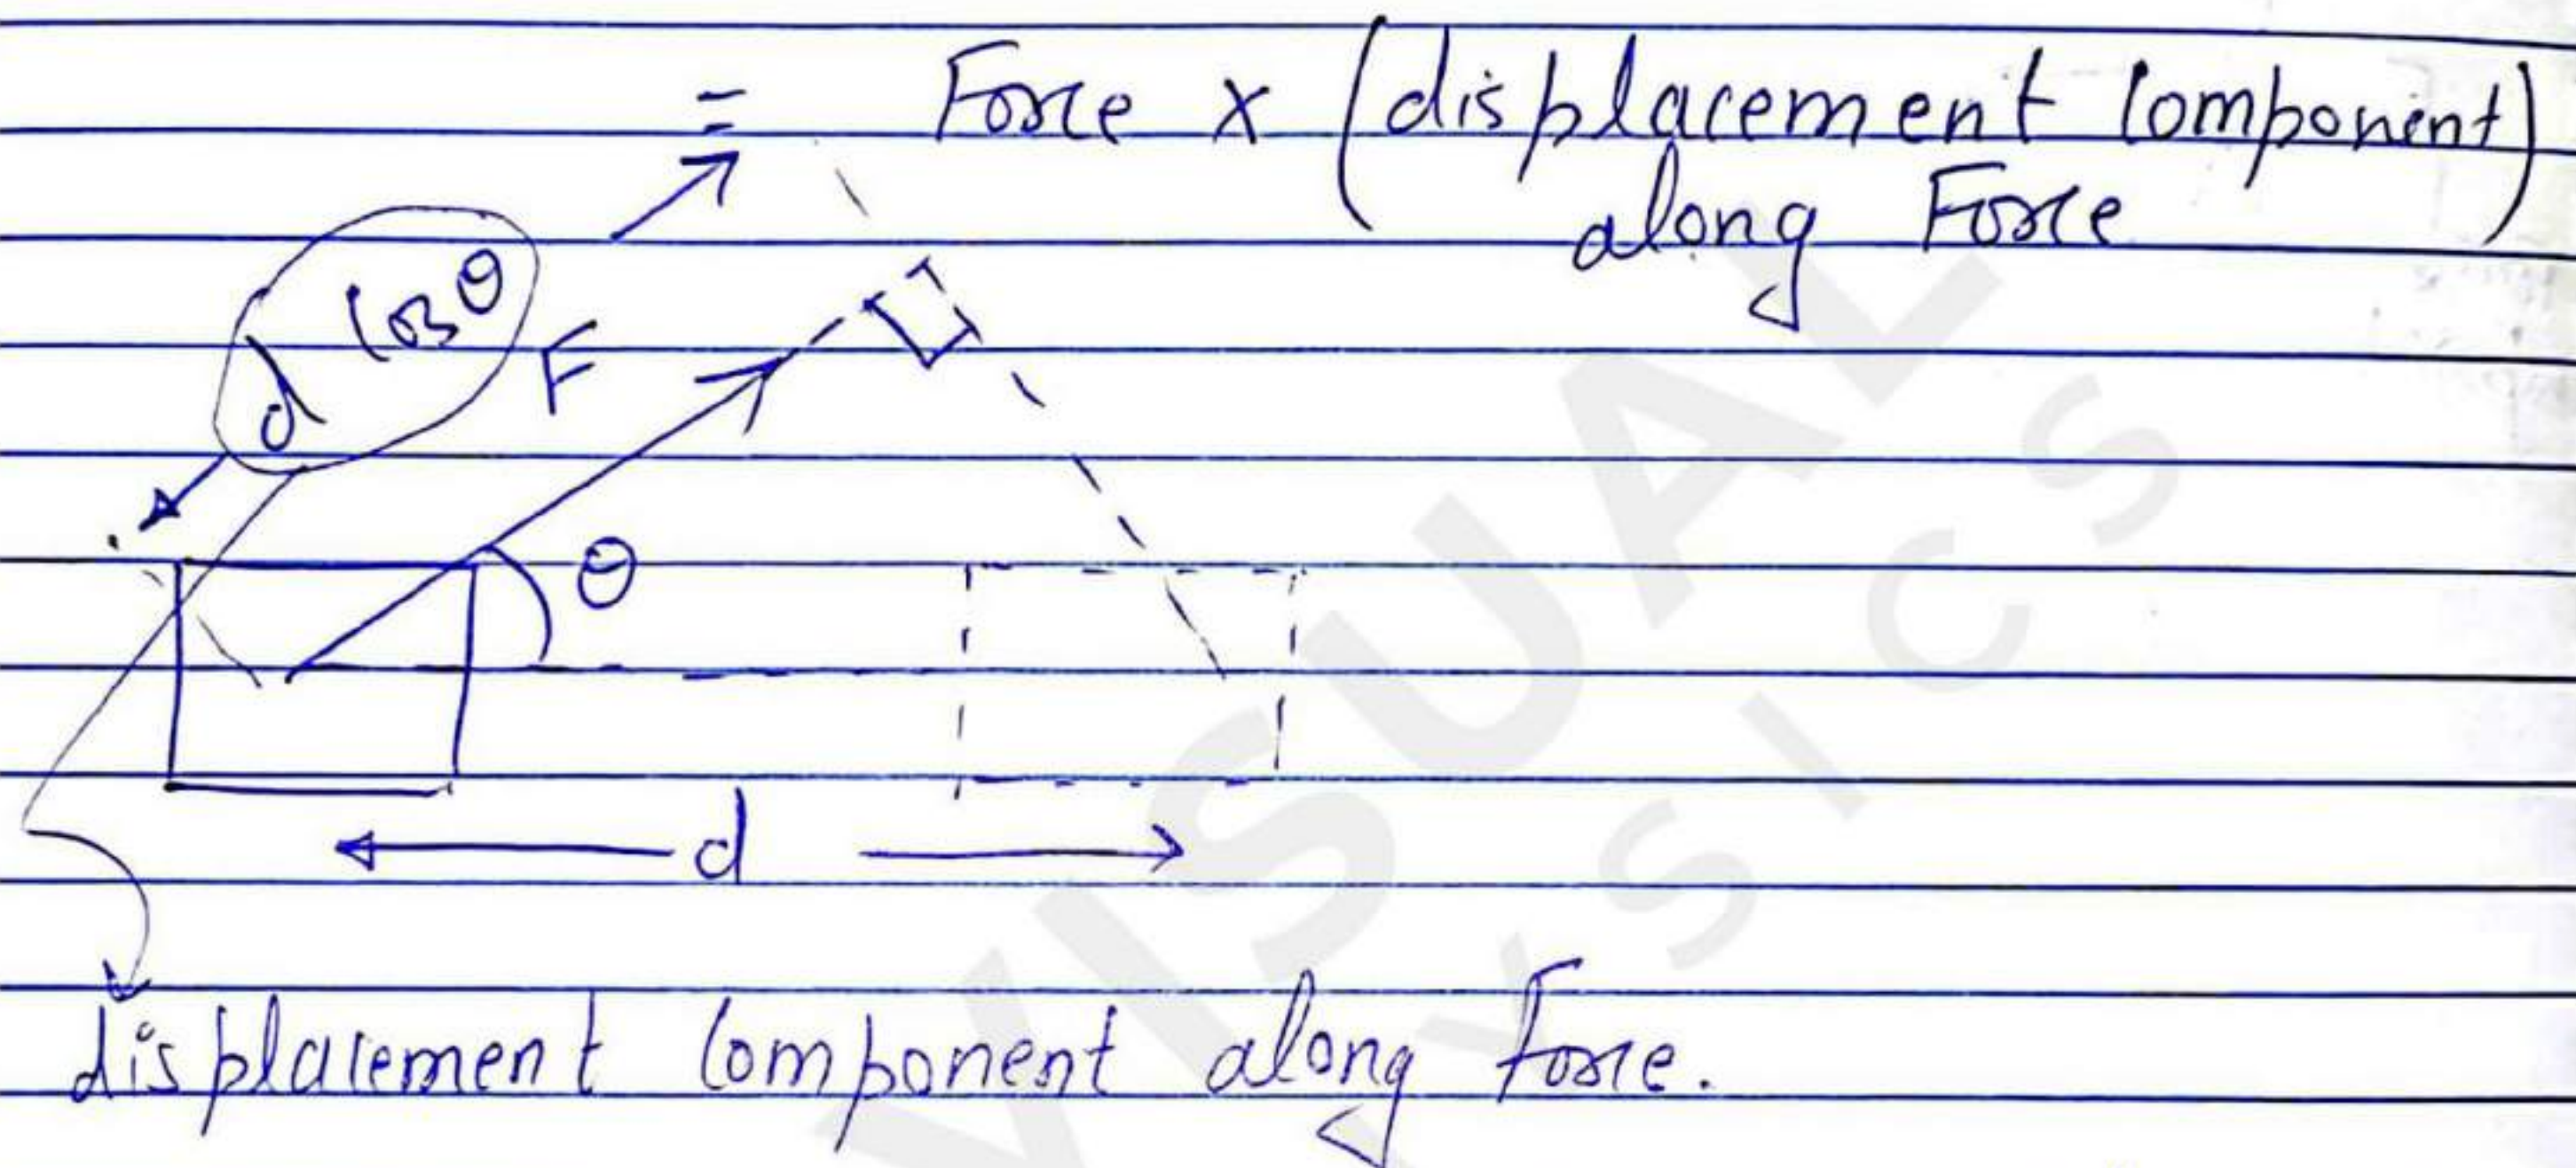 = Force x (displacement component)
along Force
d cosθ
F
θ
d
displacement component along force.
VISUAL
YSICS